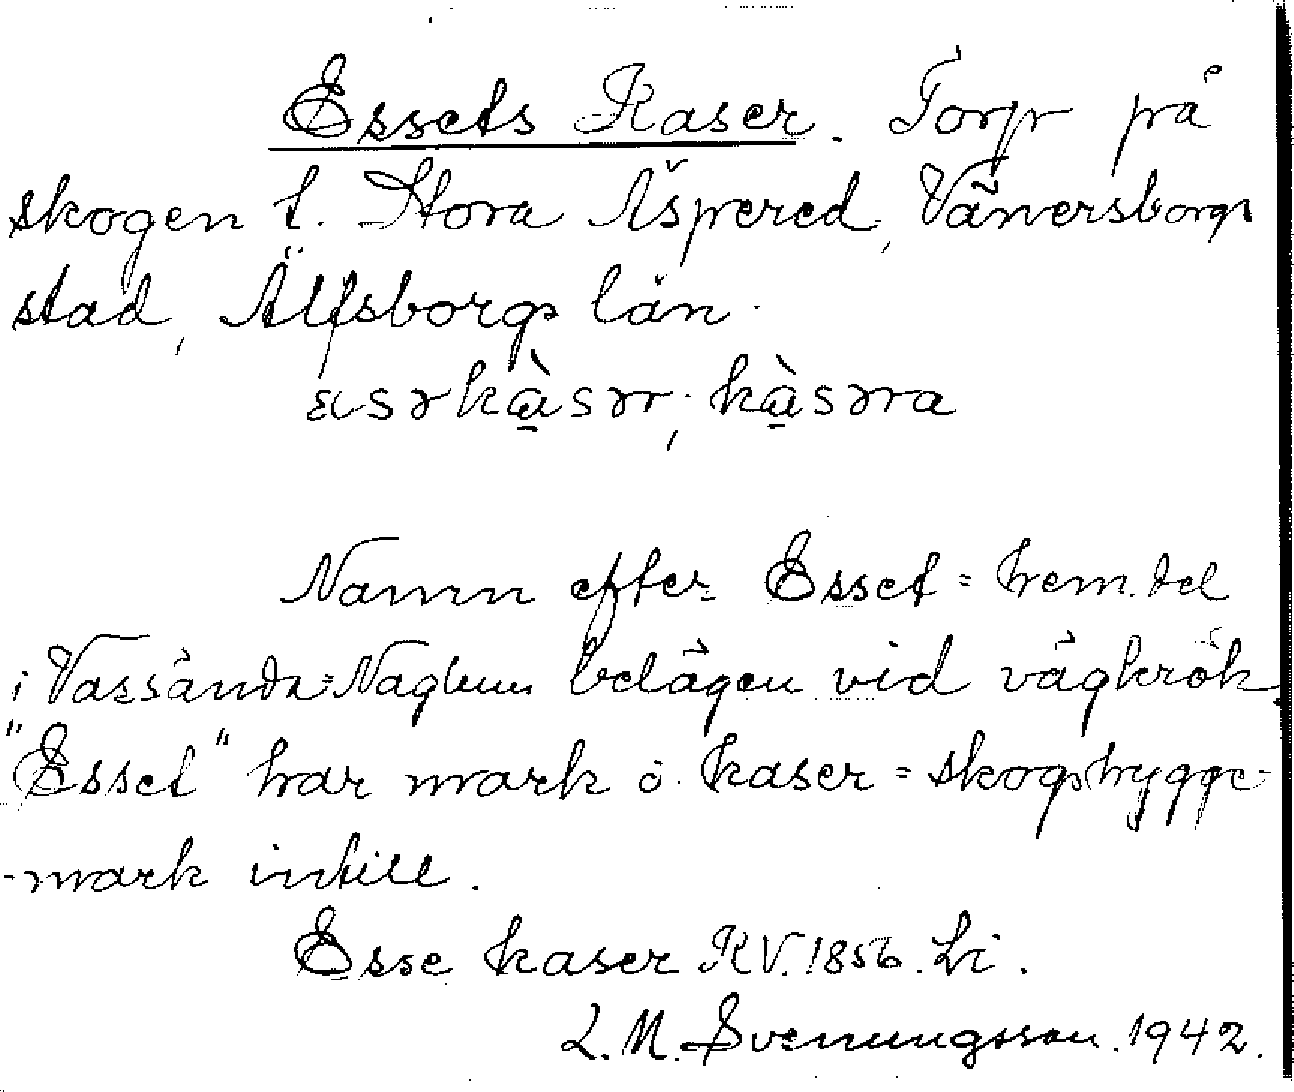 Essets Kaser. Torp på
skogen t. Stora Äspered, Vänersborgs
stad, Älfsborgs län.
Namn efter Esset = hem.del
i Vassända=Naglum belägen vid vägkrök.
"Esset" har mark o. kaser = skogshygge-
-mark intill.
Esse kaser KV. 1856. Li.
L. M. Svenungsson. 1942.